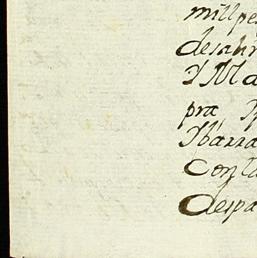 mill pe
desahr
Y Ma
pra
Ybarra
Conta
despa